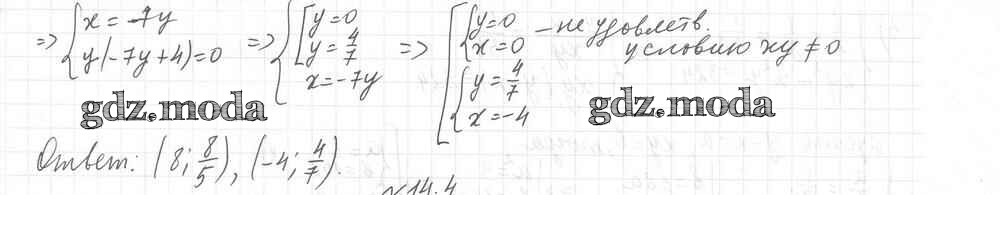 => { x = -7y
y(-7y+4)=0 => { [ y=0
y=4/7
x=-7y => [ { y=0
x=0 - не удовлетв.
условию xy ≠ 0
{ y=4/7
x=-4
gdz.moda gdz.moda
Ответ: (8; 8/5), (-4; 4/7).
N14.4